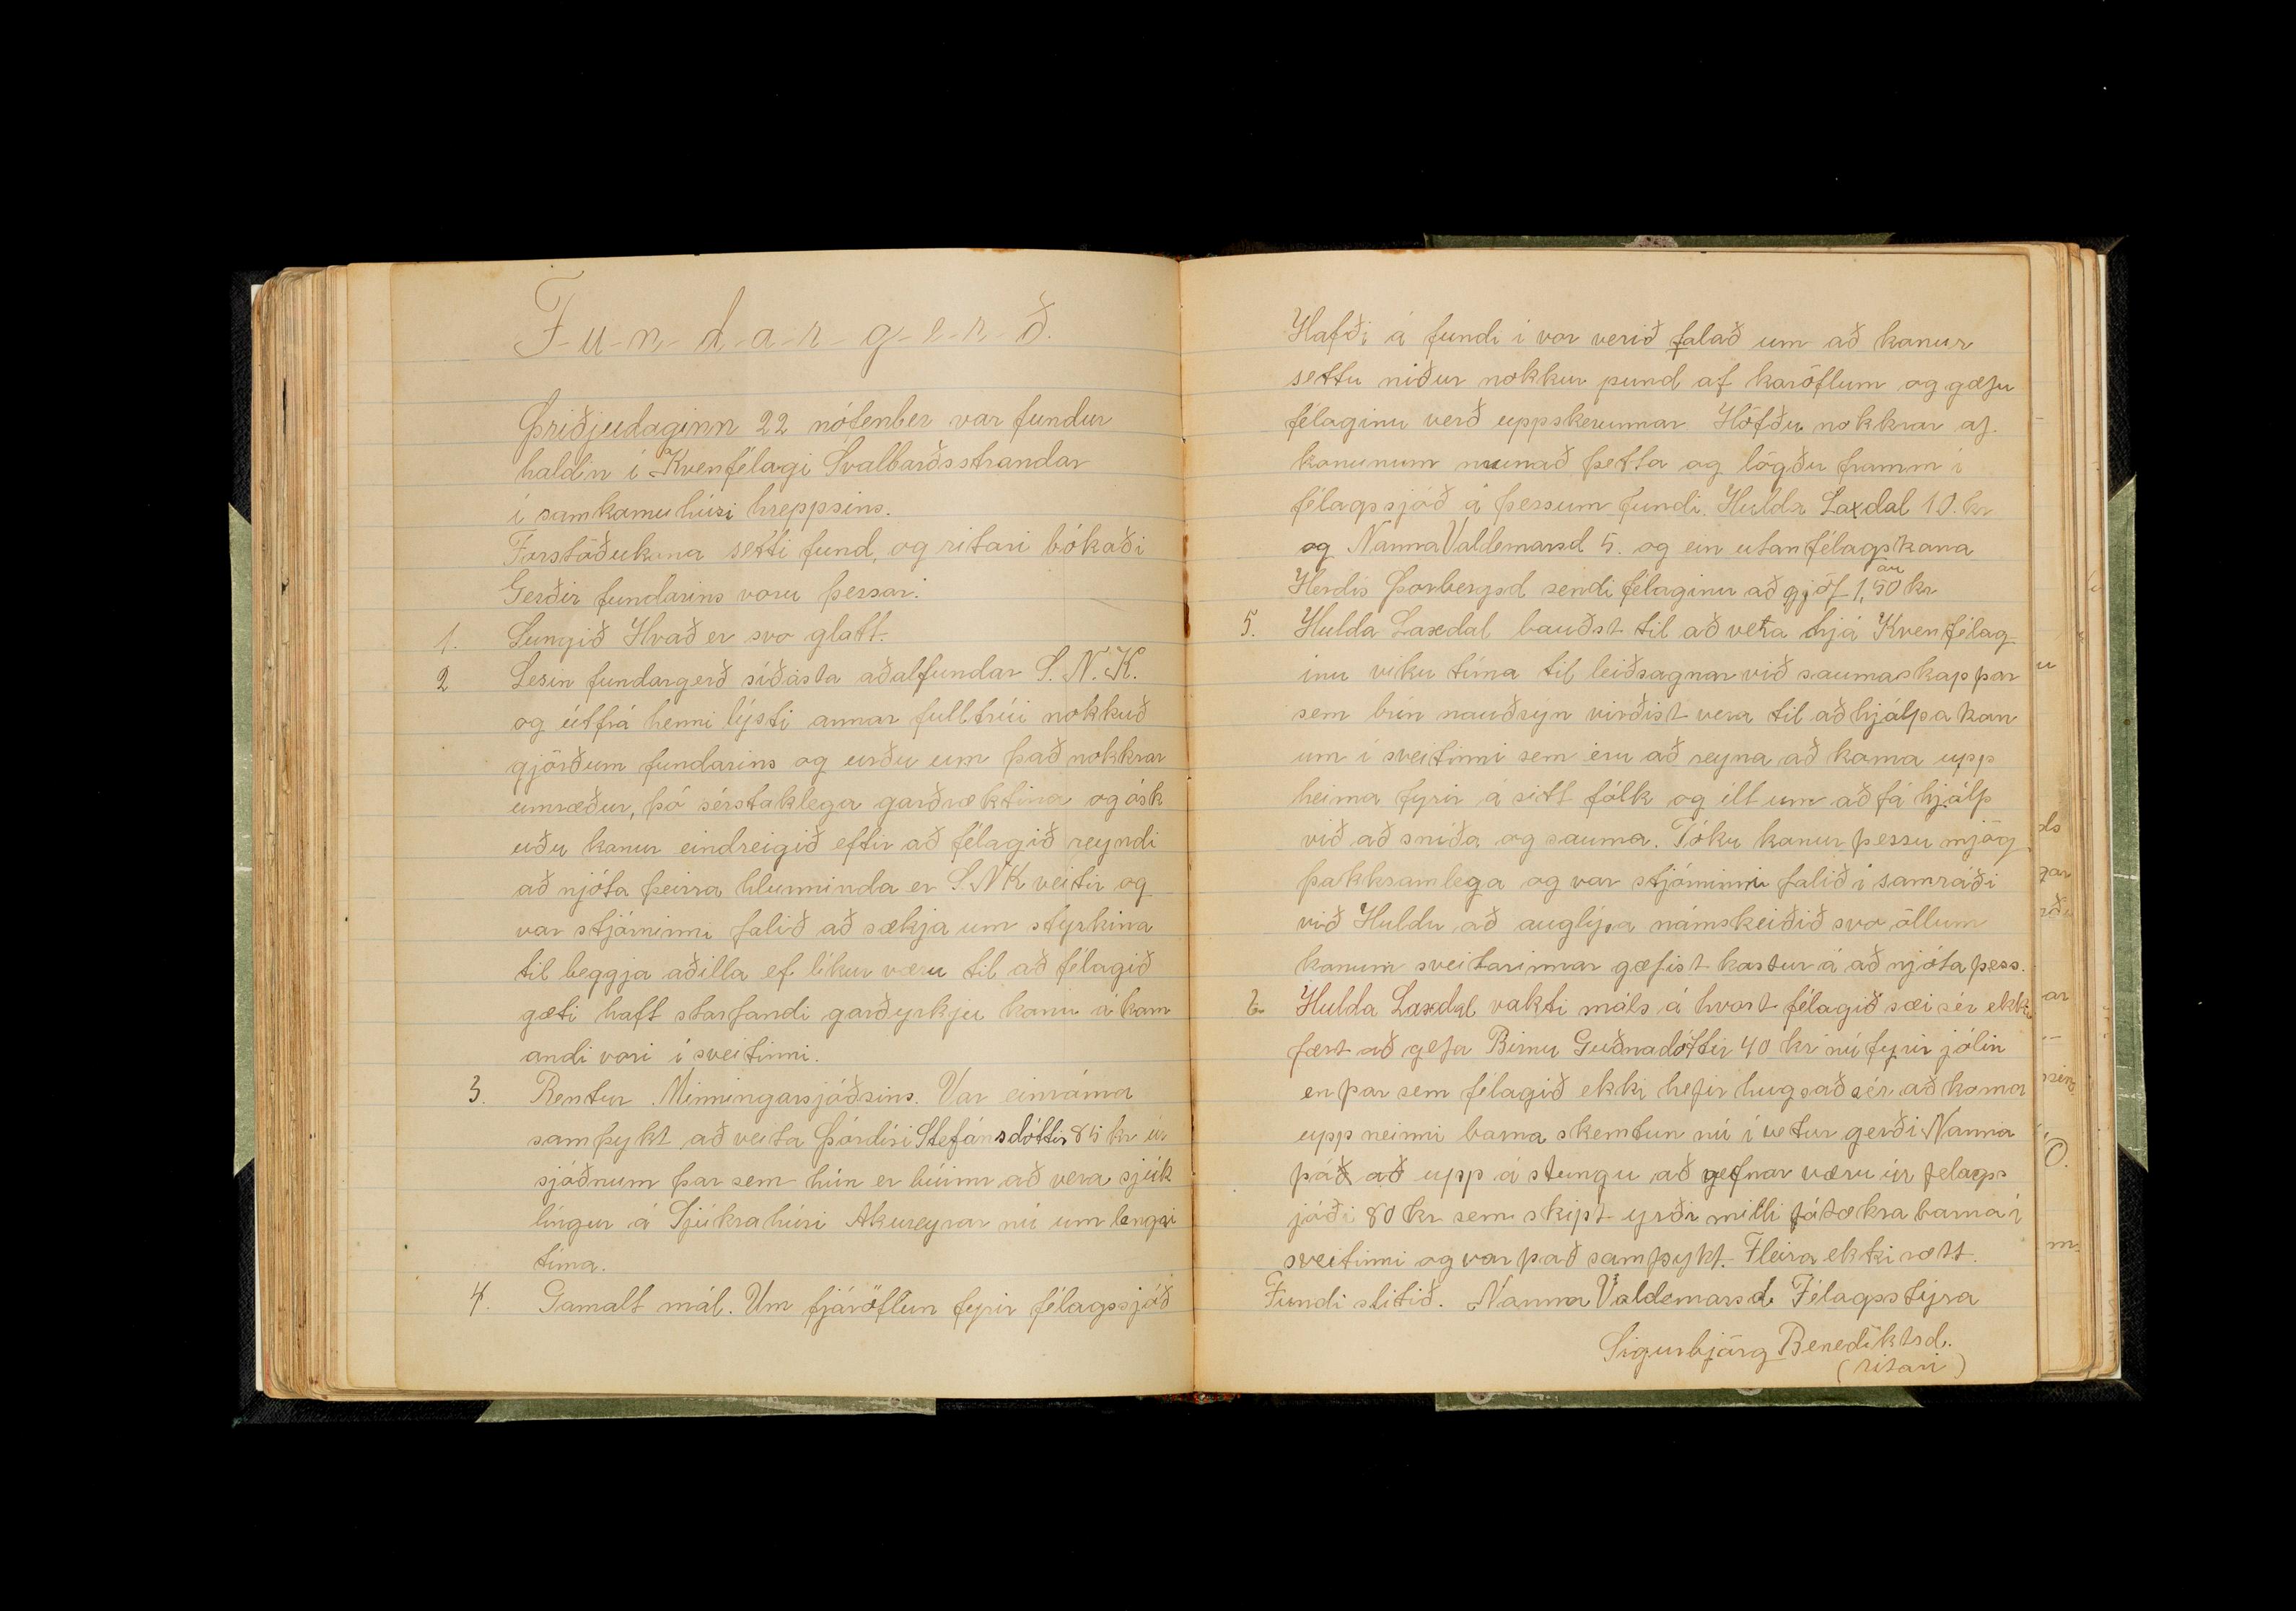 F-u-n-d-a-r-g-e-r-ð.
Þriðjudaginn 22 nóvenber var fundur
haldin í Kvenfélagi Svalbarðsstrandar
í samkomuhúsi hreppsins.
Forstöðukona setti fund, og ritari bókaði
Gerðir fundarins voru þessar.
1. Sungið Hvað er svo glatt.
2 Lesin fundargerð síðasta aðalfundar S. N. K.
og útfrá henni lýsti annar fulltrúi nokkuð
gjörðum fundarins og urðu um það nokkrar
umræður, þó sérstaklega garðræktina og ósk
uðu konur eindreigið eftir að félagið reyndi
að njóta þeirra hlunninda er S.NK veitir og
var stjórninni falið að sækja um styrkina
til beggja aðilla ef líkur væru til að félagið
gæti haft starfandi garðyrkju konu á kom
andi vori í sveitinni.
3. Rentur Minningarsjóðsins. Var einróma
samþykt að veita Þórdísi Stefánsdóttir 85 kr úr
sjóðnum þar sem hún er búinn að vera sjúk
língur á Sjúkrahúsi Akureyrar nú um lengri
tíma.
4. Gamalt mál. Um fjáröflun fyrir félagssjóð
Hafði á fundi í vor verið talað um að konur
settu niður nokkur pund af karöflum og gæfu
félaginu verð uppskerunnar Höfðu nokkrar af
konunum munað þetta og lögðu framm í
félagssjóð á þessum fundi. Hulda Laxdal 10. kr
og Nanna Valdemarsd 5. og ein utanfélagskona
Herdís Þorbergsd sendi félaginu að gjöf 1,50 kr
au
5. Hulda Laxdal bauðst til að vera hjá Kvenfélag
inu viku tíma til leiðsagnar við saumaskap þar
sem brín nauðsýn virðist vera til að hjálpa kon
um í sveitinni sem eru að reyna að koma upp
heima fyrir á sitt fólk og illt um að fá hjálp
við að sníða og sauma. Tóku konur þessu mjög
þakksamlega og var stjórninni falið í samráði
við Huldu að auglýsa námskeiðið svo öllum
konum sveitarinnar gæfist kostur á að njóta þess.
6. Hulda Laxdal vakti máls á hvort félagið sæi sér ekki
fært að gefa Birnu Guðnadóttir 40 kr nú fyrir jólin
en þar sem félagið ekki hefir hugsað sér að koma
upp neinni barna skemtun nú í vetur gerði Nanna
það að upp á stungu að gefnar væru úr felags
jóði 80 kr sem skipt yrði milli fátækra barna í
sveitinni og var það samþykt. Fleira ekki rætt.
Fundi slitið. Nanna Valdemarsd. Félagsstýra
Sigurbjörg Benediktsd.
(ritari)